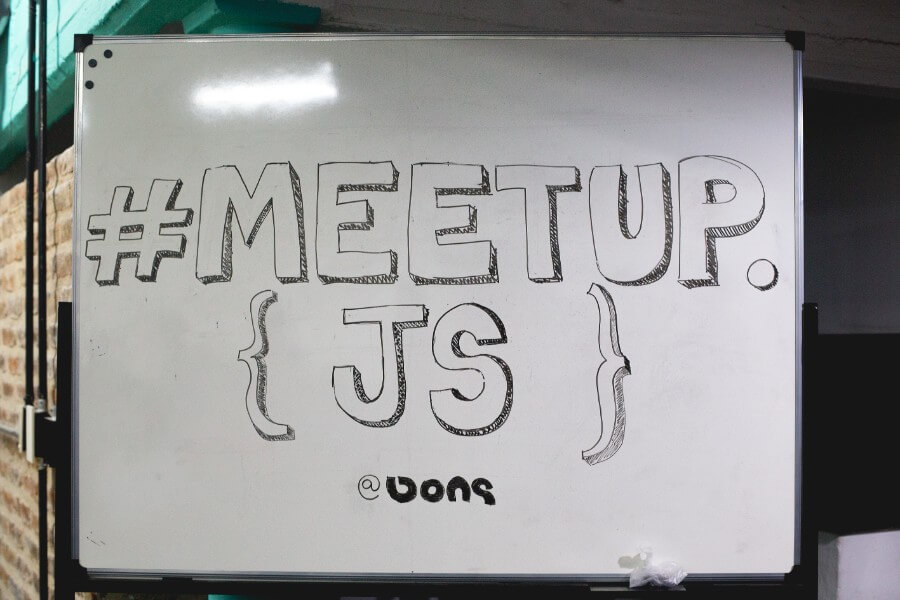 #MEETUP.
{ JS }
@bons